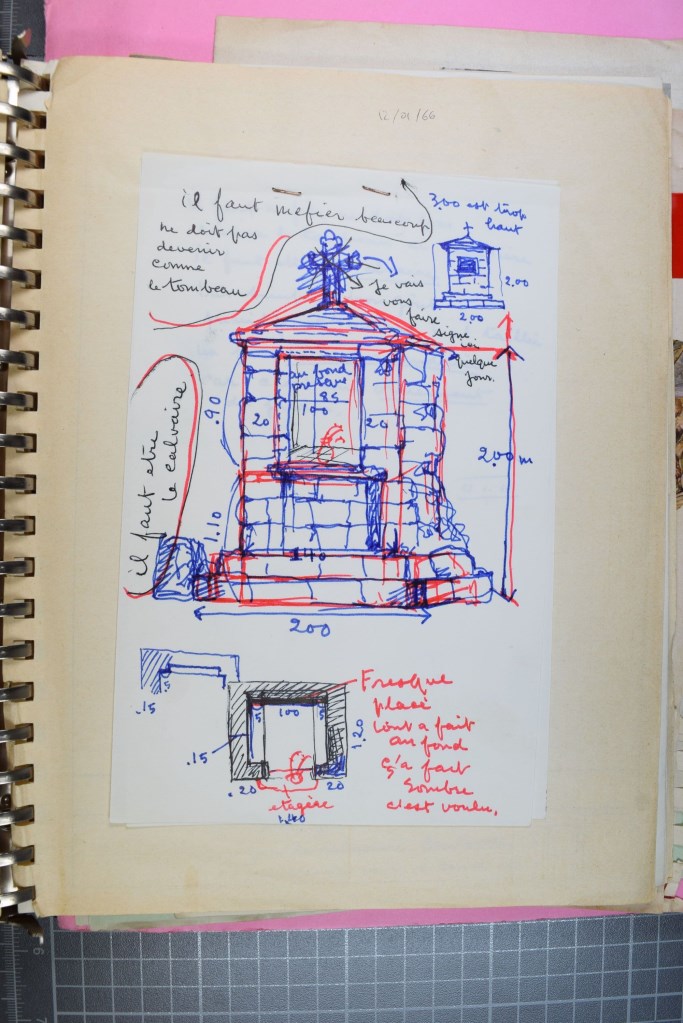 12/01/66
il faut mefier beaucoup
ne doit pas
devenir
comme
le tombeau
3.00 est trop
haut
2.00
2.00
Je vais
vous
faire
signe ici
quelque
jour.
au fond
presque
85
100
20
20
.90
1.10
il faut etre
le calvaire
2.00 m
140
200
5
.15
Fresque
placi
tout a fait
au fond
ç'a fait
sombre
c'est voulu.
5
100
5
.15
1.20
.20
20
etagère
1.40